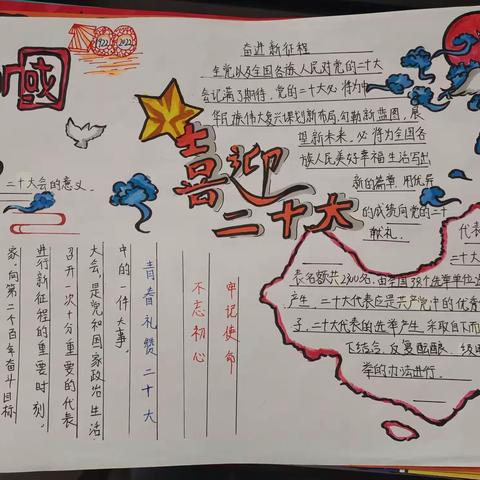 國
1922 2022
奋进新征程
全党以及全国各族人民对党的二十大
会记满了期待,党的二十大必将为中
华民族伟大复兴谋划新布局,勾勒新蓝图,展
望新未来,必将在全国各
族人民美好幸福生活写出
新的篇章,用优异
的成绩向党的二十
献礼。
喜迎
二十大
二十大会的意义。
牢记使命
不忘初心
青春礼赞二十大
中的一件大事。
大会,是党和国家政治生活
召开一次十分重要的代表
进行新征程的重要时刻。
家,向第二个百年奋斗目标
代表
二十大
表名额共2300名,由全国38个选举单位
产生,二十大代表应是共产党中的优秀
子,二十大代表的选举产生,采取自下而
下结合、反复酝酿、级
举的办法进行。